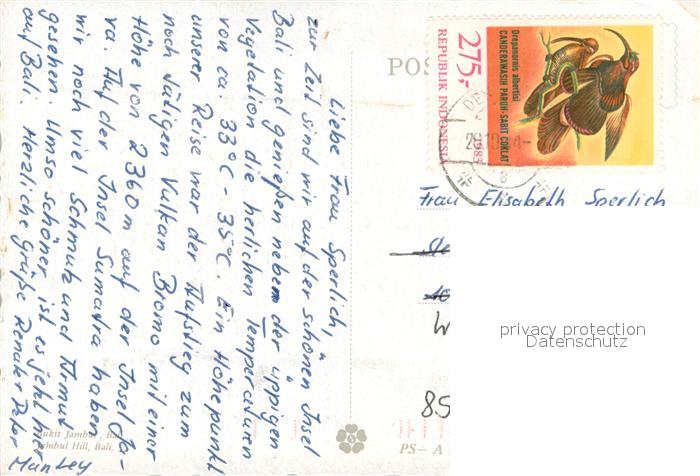 Liebe Frau Sperlich,
zur Zeit sind wir auf der schönen Insel
Bali und genießen neben der üppigen
Vegetation die herlichen Temperaturen
von ca. 33°C - 35°C. Ein Höhepunkt
unserer Reise war der Aufstieg zum
noch tätigen Vulkan Bromo mit einer
Höhe von 2360m auf der Insel Ja-
va. Auf der Insel Sumatra haben
wir noch viel Schmutz und Armut
gesehen. Umso schöner ist es jetzt hier
auf Bali. Herzliche Grüße Renate Peter
Mantey
Bukit Jambul, Bali
Jambul Hill, Bali.
PS-A
POS
275,-
REPUBLIK INDONESIA
Drepanornis albertisi
CENDERAWASIH PARUH-SABIT COKLAT
Frau Elisabeth Sperlich
W
85
privacy protection
Datenschutz